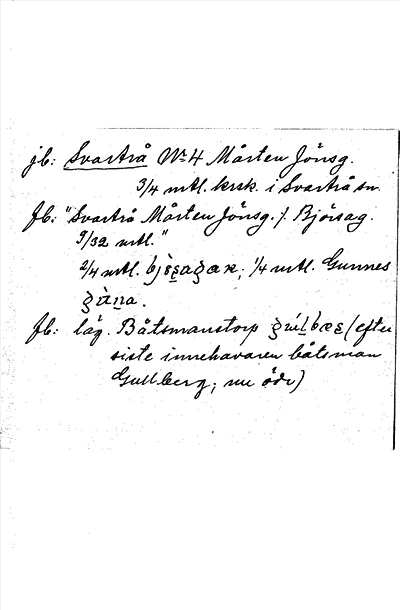 jb: Svartrå No 4 Mårten Jönsg.
3/4 mtl. krsk. i Svartrå sn.
fb: "Svartrå Mårten Jönsg. /. Björsag.
9/32 mtl."
2/4 mtl. 1/4 mtl. Gunnes
fb: läg. Båtsmanstorp (efter
siste innehavaren båtsman
Gullberg; nu öde)